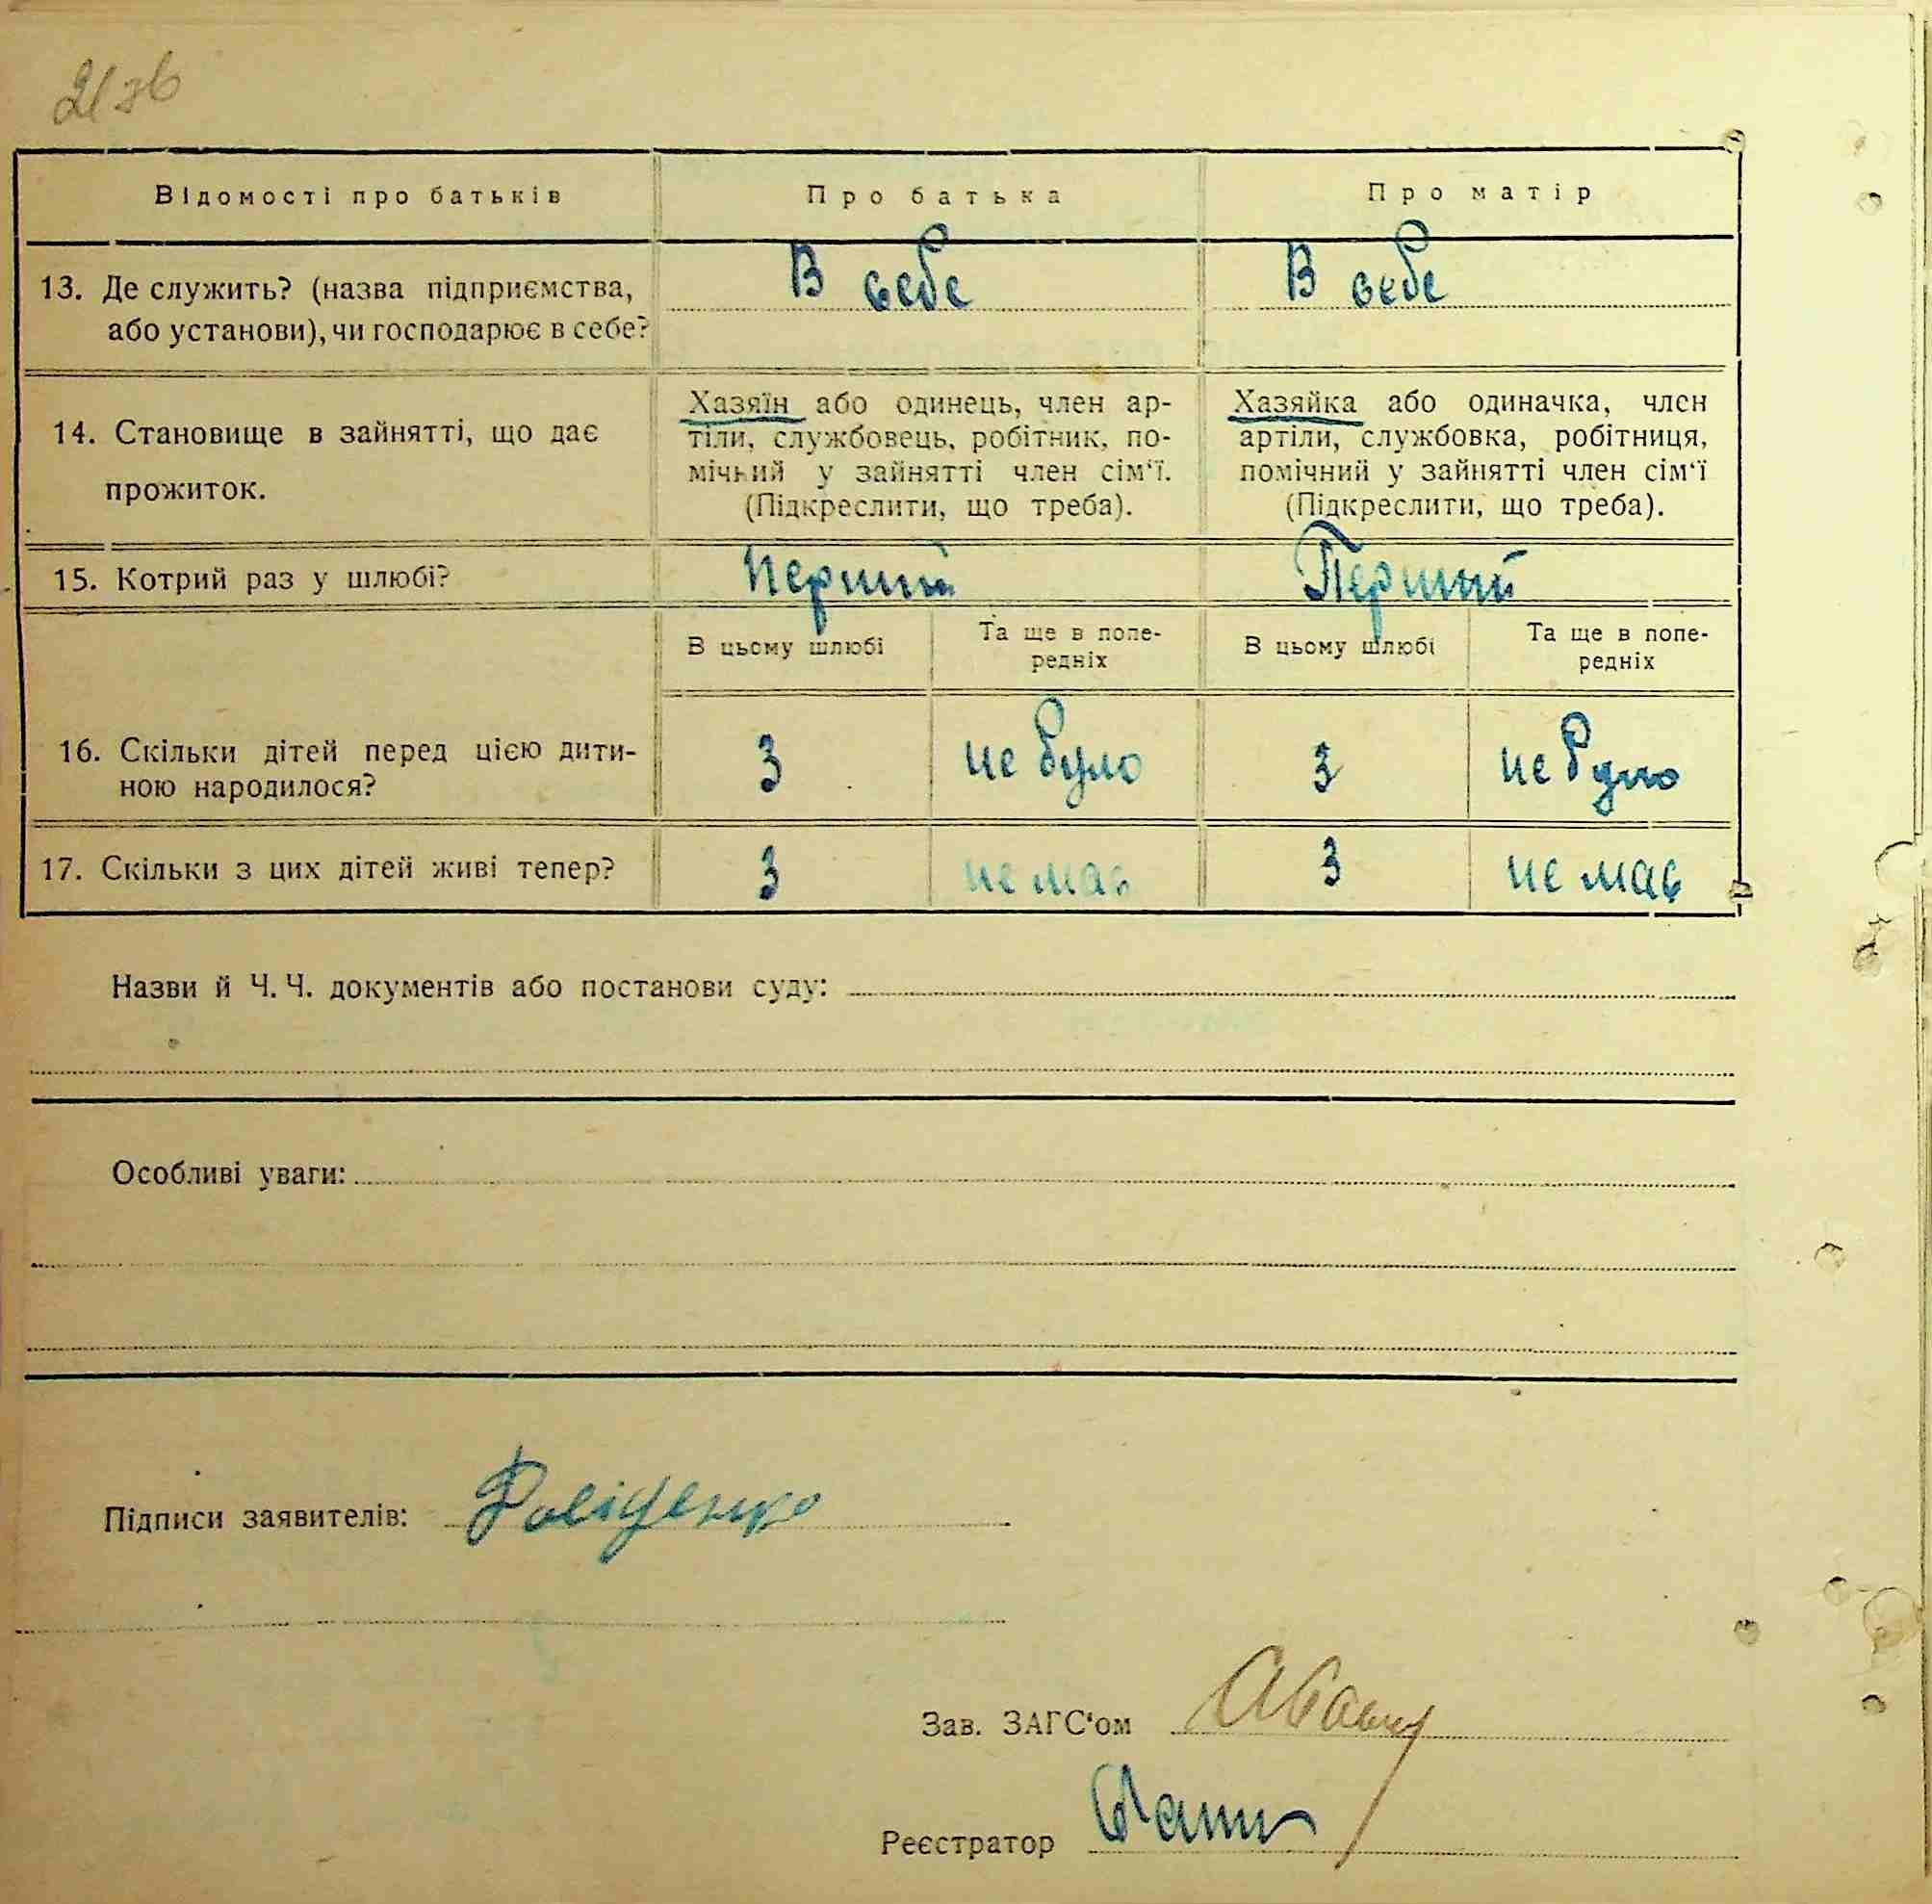 21 зв
Відомості про батьків
Про батька
Про матір
13. Де служить? (назва підприємства,
або установи), чи господарює в себе?
В себе
В себе
14. Становище в зайнятті, що дає
прожиток.
Хазяїн або одинець, член ар-
тіли, службовець, робітник, по-
мічний у зайнятті член сім‘ї.
(Підкреслити, що треба).
Хазяйка або одиначка, член
артіли, службовка, робітниця,
помічний у зайнятті член сім‘ї
(Підкреслити, що треба).
15. Котрий раз у шлюбі?
Перший
Перший
В цьому шлюбі
Та ще в попе-
редніх
В цьому шлюбі
Та ще в попе-
редніх
16. Скільки дітей перед цією дити-
ною народилося?
3
не було
3
не було
17. Скільки з цих дітей живі тепер?
3
не має
3
не має
Назви й Ч. Ч. документів або постанови суду:
Особливі уваги:
Підписи заявителів:
Зав. ЗАГС‘ом
Реєстратор